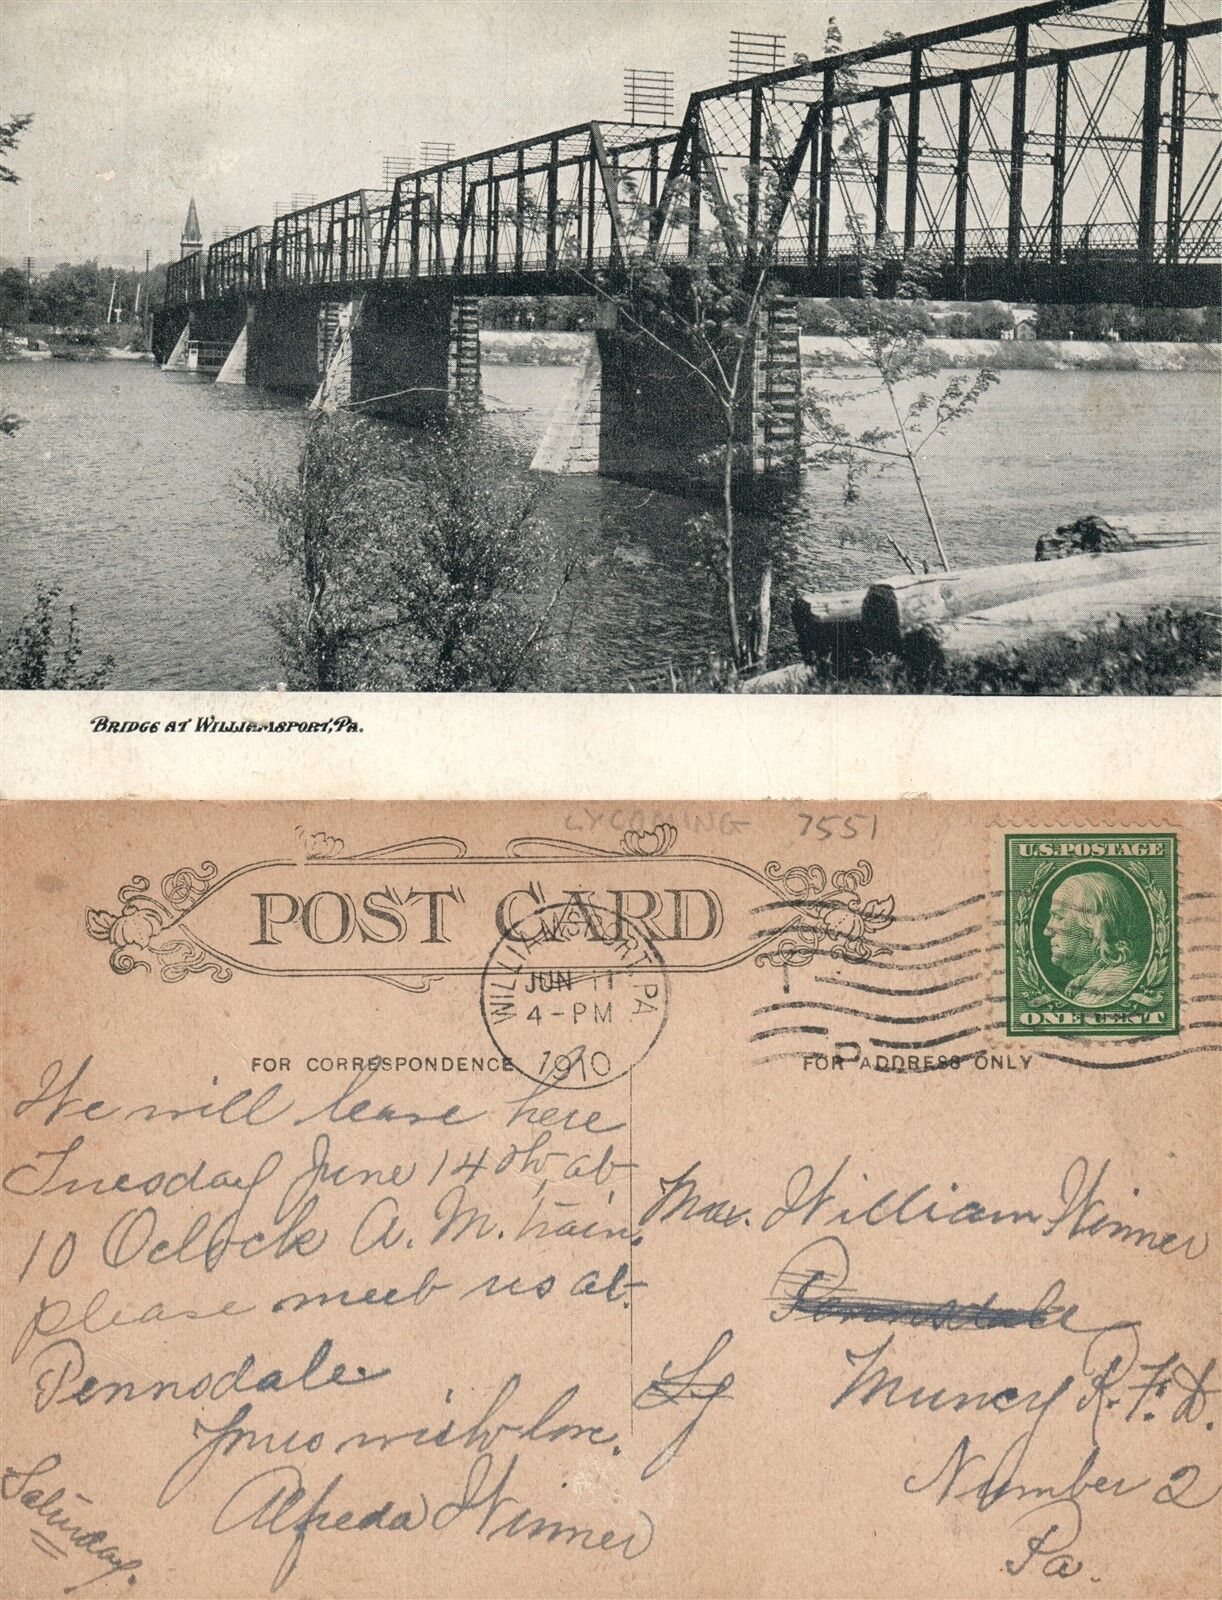 Bridge at Williamsport, Pa.
LYCOMING 7551
POST CARD
U.S. POSTAGE
ONE CENT
WILLIAMSPORT, PA
JUN 11
4-PM
1910
FOR CORRESPONDENCE
FOR ADDRESS ONLY
We will leave here
Tuesday June 14th, at
10 Oclock A. M. train.
please meet us at
Pennsdale.
Yours with love.
Alfreda Winner
Saturday.
William Winner
Pennsdale
Ly
Muncy R. F. D.
Number 2
Pa.